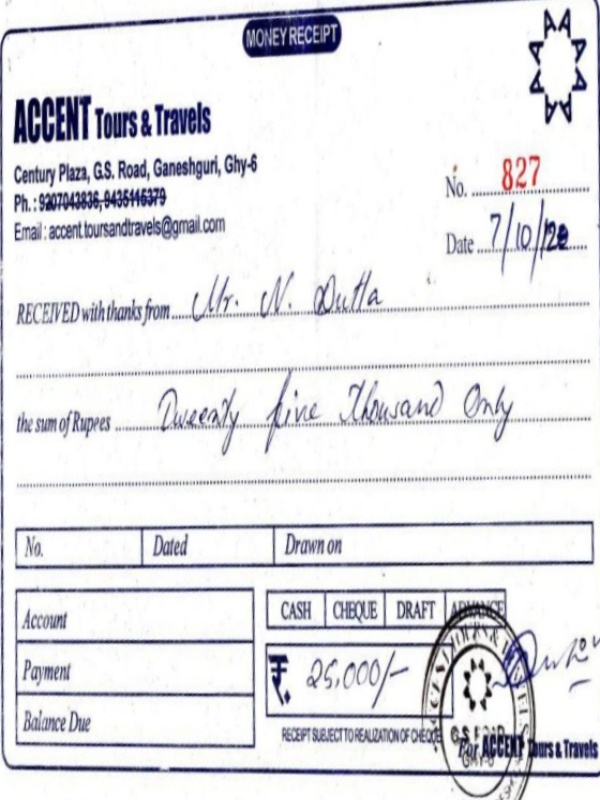 MONEY RECEIPT
ACCENT Tours & Travels
Century Plaza, G.S. Road, Ganeshguri, Ghy-6
Ph. : 9207043836, 9435115379
Email : accent.toursandtravels@gmail.com
No. 827
Date 7/10/20
RECEIVED with thanks from Mr. N. Dutta
the sum of Rupees Tweenty five Thousand Only
No. Dated Drawn on
CASH CHEQUE DRAFT ADVANCE
Account
Payment
Balance Due
₹. 25,000/-
RECEIPT SUBJECT TO REALIZATION OF CHEQUE
For ACCENT Tours & Travels